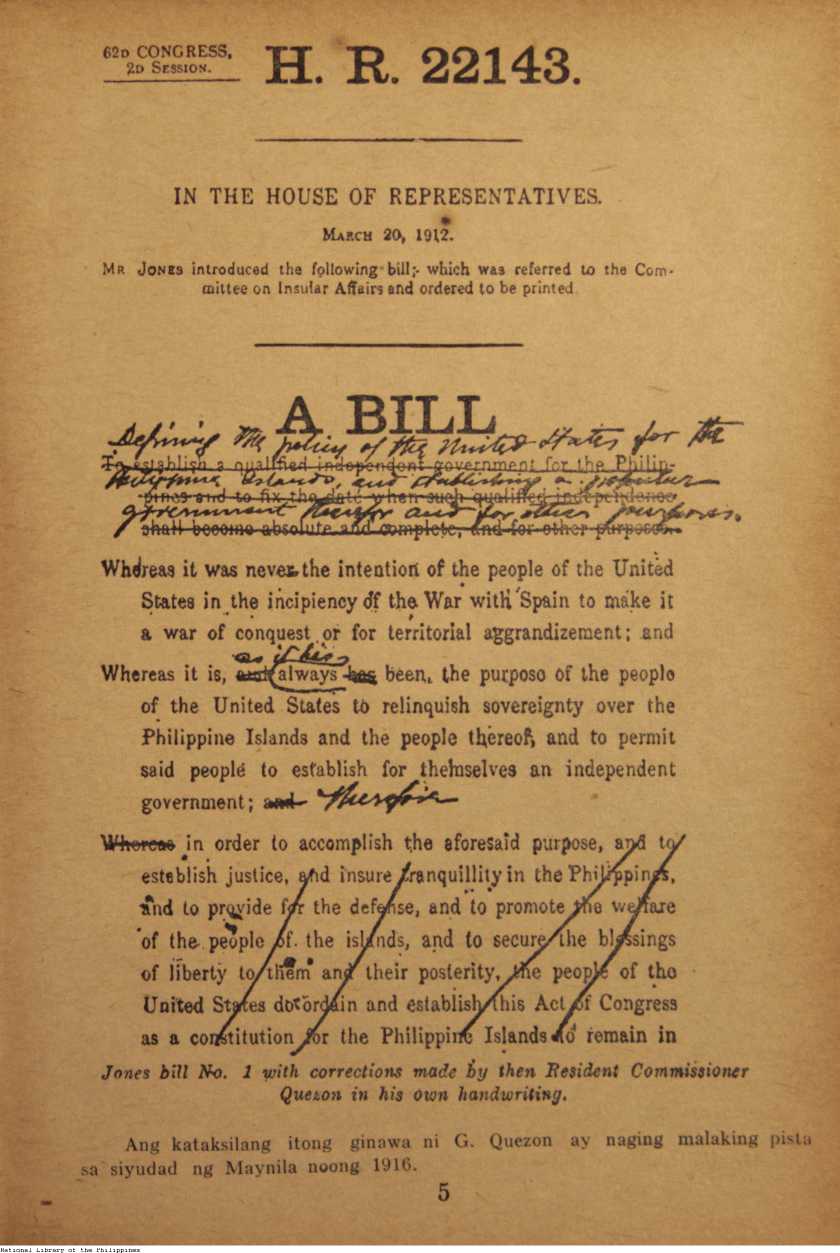 62D CONGRESS,
2D SESSION.
H. R. 22143.
IN THE HOUSE OF REPRESENTATIVES.
MARCH 20, 1912.
MR JONES introduced the following bill; which was referred to the Com-
mittee on Insular Affairs and ordered to be printed.
A BILL
Defining the policy of the United States for the
To establish a qualified independent government for the Philip-
Philippine Islands, and establishing a popular
pines and to fix the date when such qualified independence
government therefor and for other purposes.
shall become absolute and complete, and for other purposes.
Whereas it was never the intention of the people of the United
States in the incipiency of the War with Spain to make it
a war of conquest or for territorial aggrandizement; and
as it has
Whereas it is, and always has been, the purpose of the people
of the United States to relinquish sovereignty over the
Philippine Islands and the people thereof, and to permit
said people to establish for themselves an independent
government; and therefore
Whereas in order to accomplish the aforesaid purpose, and to
establish justice, and insure tranquillity in the Philippines,
and to provide for the defense, and to promote the welfare
of the people of the islands, and to secure the blessings
of liberty to them and their posterity, the people of the
United States do ordain and establish this Act of Congress
as a constitution for the Philippine Islands to remain in
Jones bill No. 1 with corrections made by then Resident Commissioner
Quezon in his own handwriting.
Ang kataksilang itong ginawa ni G. Quezon ay naging malaking pista
sa siyudad ng Maynila noong 1916.
5
National Library of the Philippines